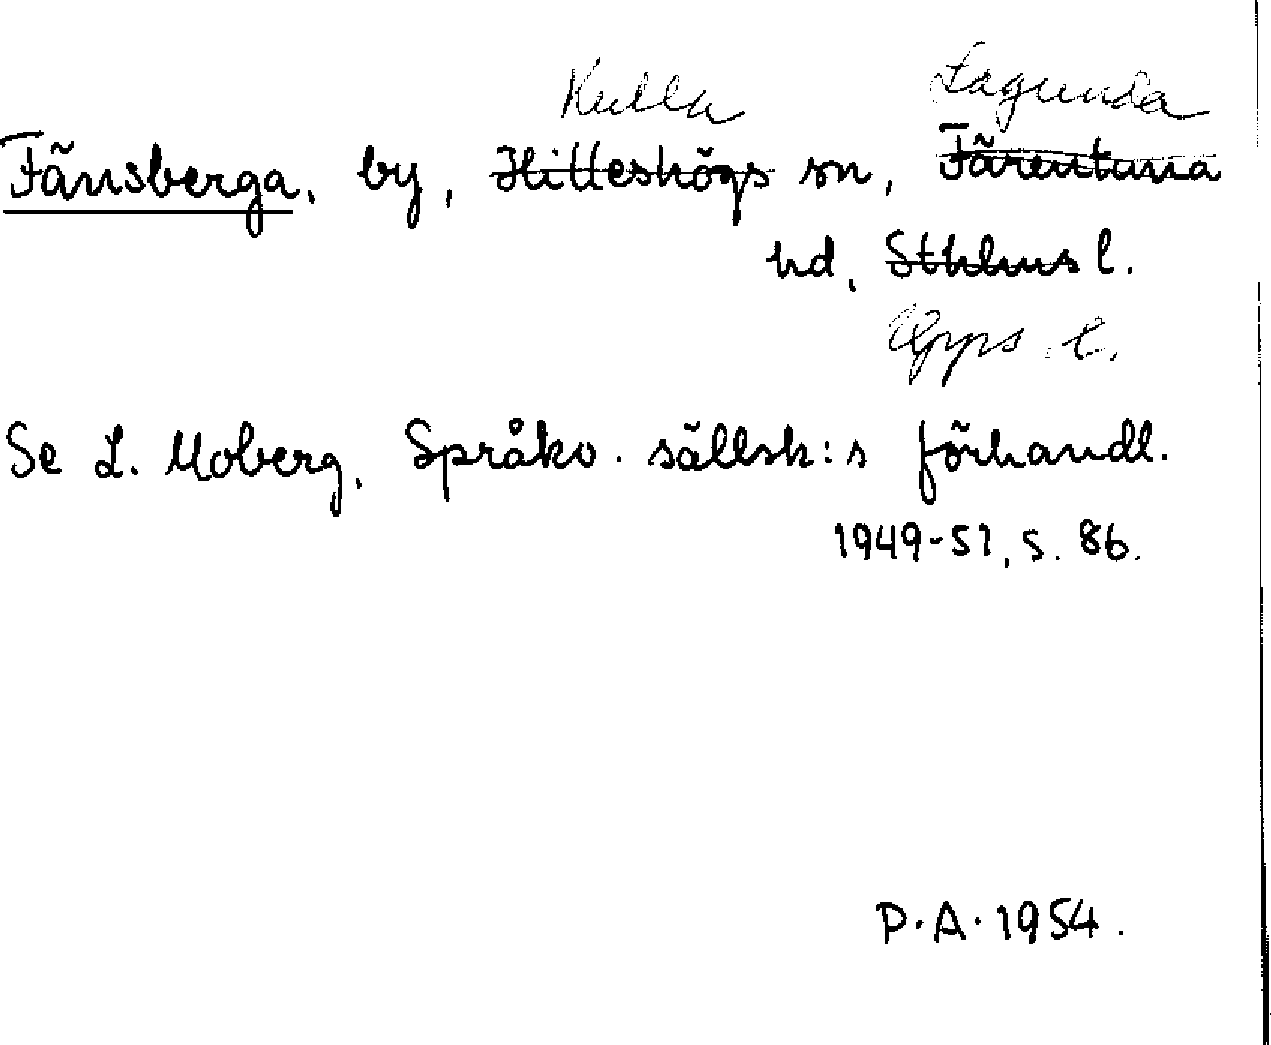 Kulla Lagunda
Fänsberga, by, Hilleshögs sn, Färentuna
hd, Sthlms l.
Upps. l.
Se L. Moberg, Språkv. sällsk:s förhandl.
1949-51, s. 86.
P.A. 1954.